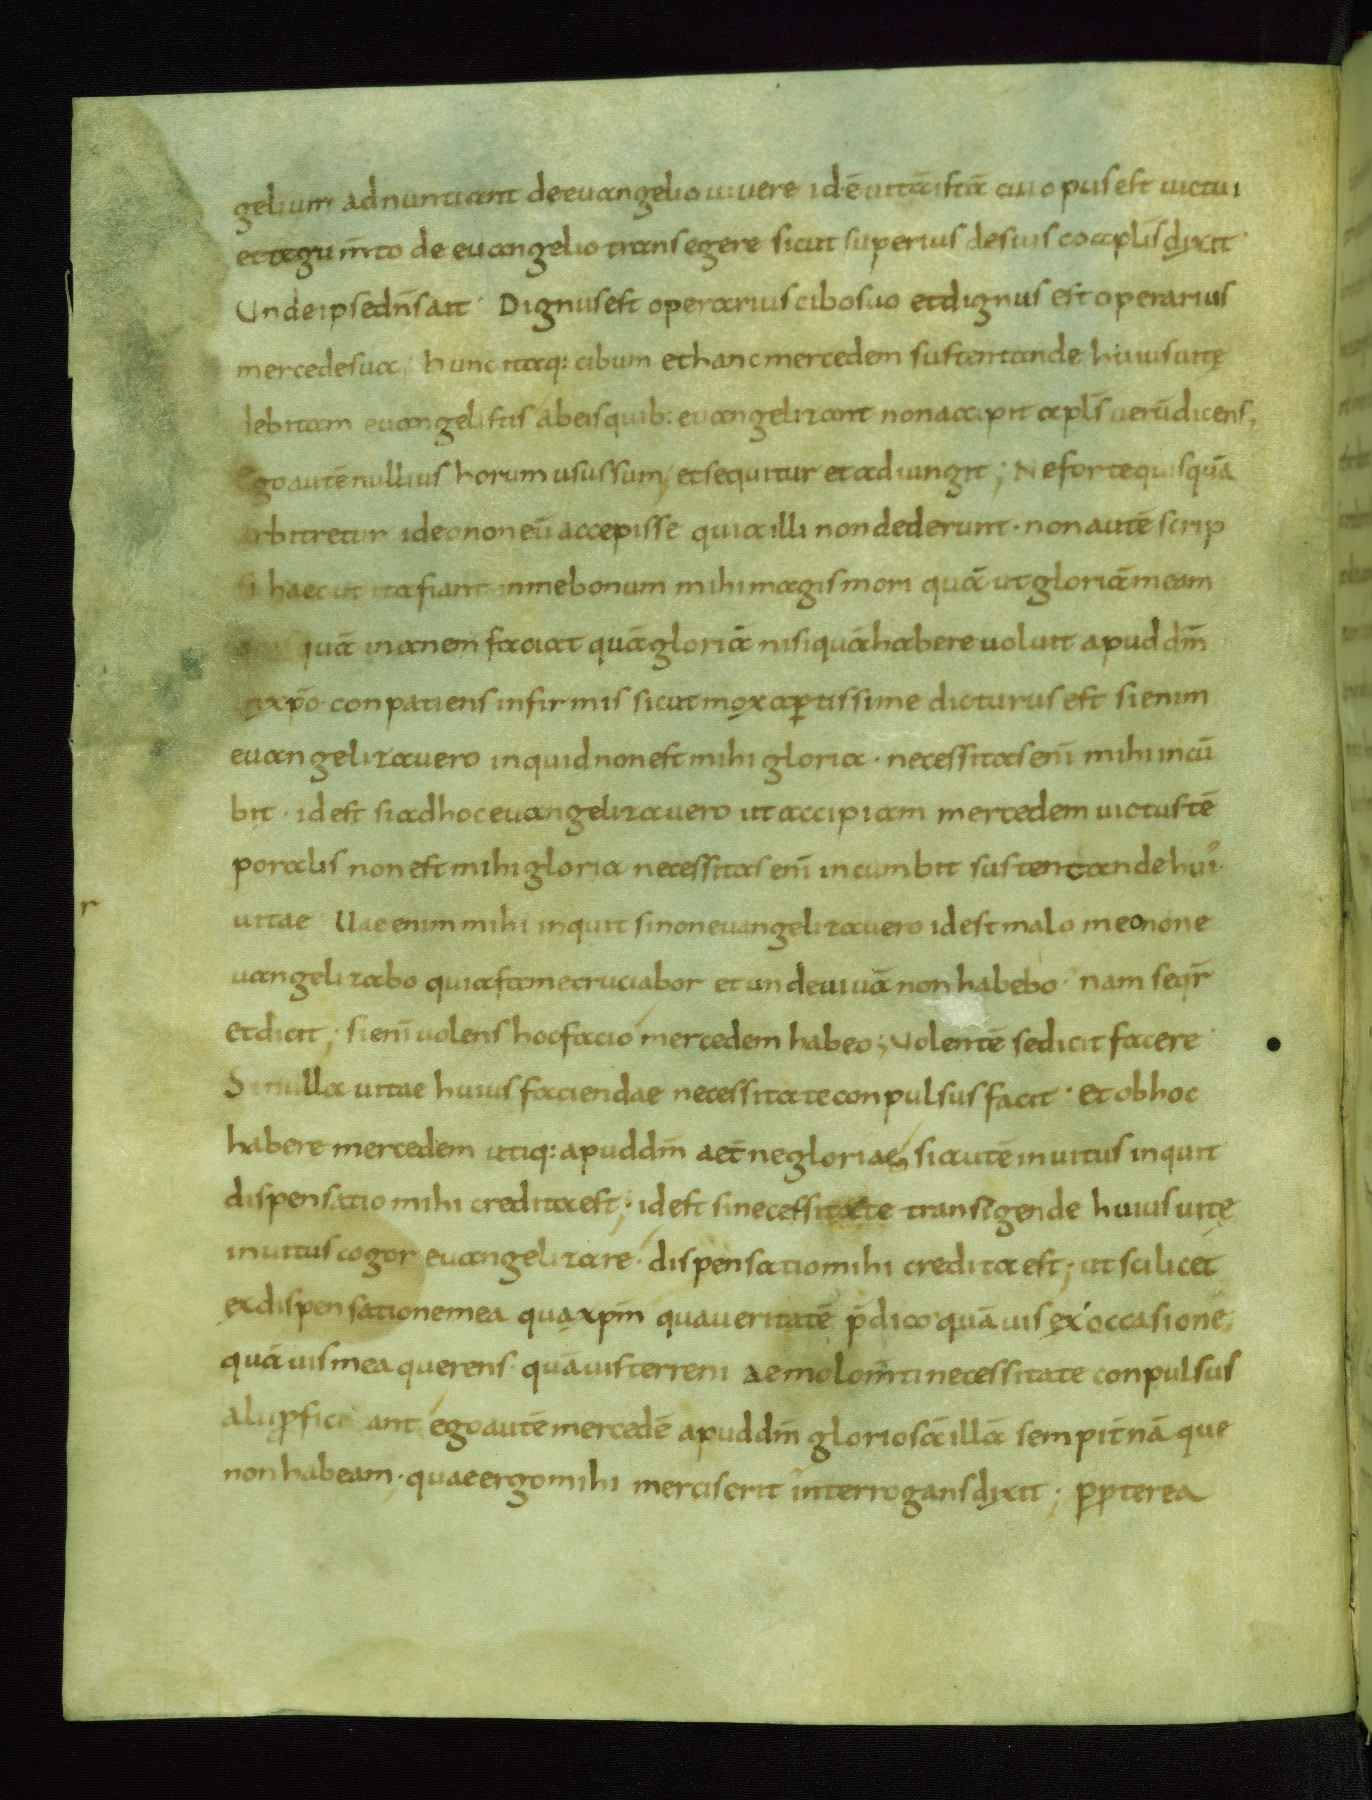 gelium adnuntiant deeuangelio uiuere id·ē uitā istā cui opus est uictui
et tegumto de euangelio transegere sicut superius desuis coaplis dixit·
Unde ipse dn̄s ait· Dignus est operarius cibo suo et dignus est operarius
mercede sua; hunc itaq: cibum et hanc mercedem sustentande huius uitę
debitam euangelistis abeis quib: euangelizant non accipit apl̄s uerū dicens,
Ego autē nullius horum usus sum; et sequitur et adiungit; Ne forte quisquā
arbitretur ideo non eū accepisse quia illi non dederunt· non autē scrip
si haec ut ita fiant in me bonum mihi magis mori quā ut gloriā meam
quā inanem faciat quā gloriā nisi quā habere uoluit apud dm̄
xpō· conpatiens infirmis sicut mox aptissime dicturus est si enim
euangelizauero inquid non est mihi gloria· necessitas enī mihi incū
bit· id est si adhoc euangelizauero ut accipiam mercedem uictus tē
poralis non est mihi gloria necessitas enī incumbit sustentande hui᾽·
r
uitae Uae enim mihi inquit si non euangelizauero id est malo meo non e
uangelizabo quia fame cruciabor et unde uiuā non habebo· nam seqr̄
et dicit; si enī uolens hoc facio mercedem habeo; Uolentē se dicit facere·
Si nulla uitae huius faciendae necessitate conpulsus facit· Et ob hoc
habere mercedem utiq: apud dm̄ aet̄ne gloriae, si autē inuitus inquit
dispensatio mihi credita est; id est si necessitate transigende huius uitę
inuitus cogor euangelizare· dispensatio mihi credita est; ut scilicet
ex dispensatione mea quia xpm̄ quia ueritatē p̄dico quāuis ex occasione,
quāuis mea querens· quāuis terreni aemolom̄ti necessitate conpulsus
alii pficiant ego autē mercedē apud dm̄ gloriosā illā sempit̄nā que
non habeam· quae ergo mihi mercis erit interrogans dixit; ppterea